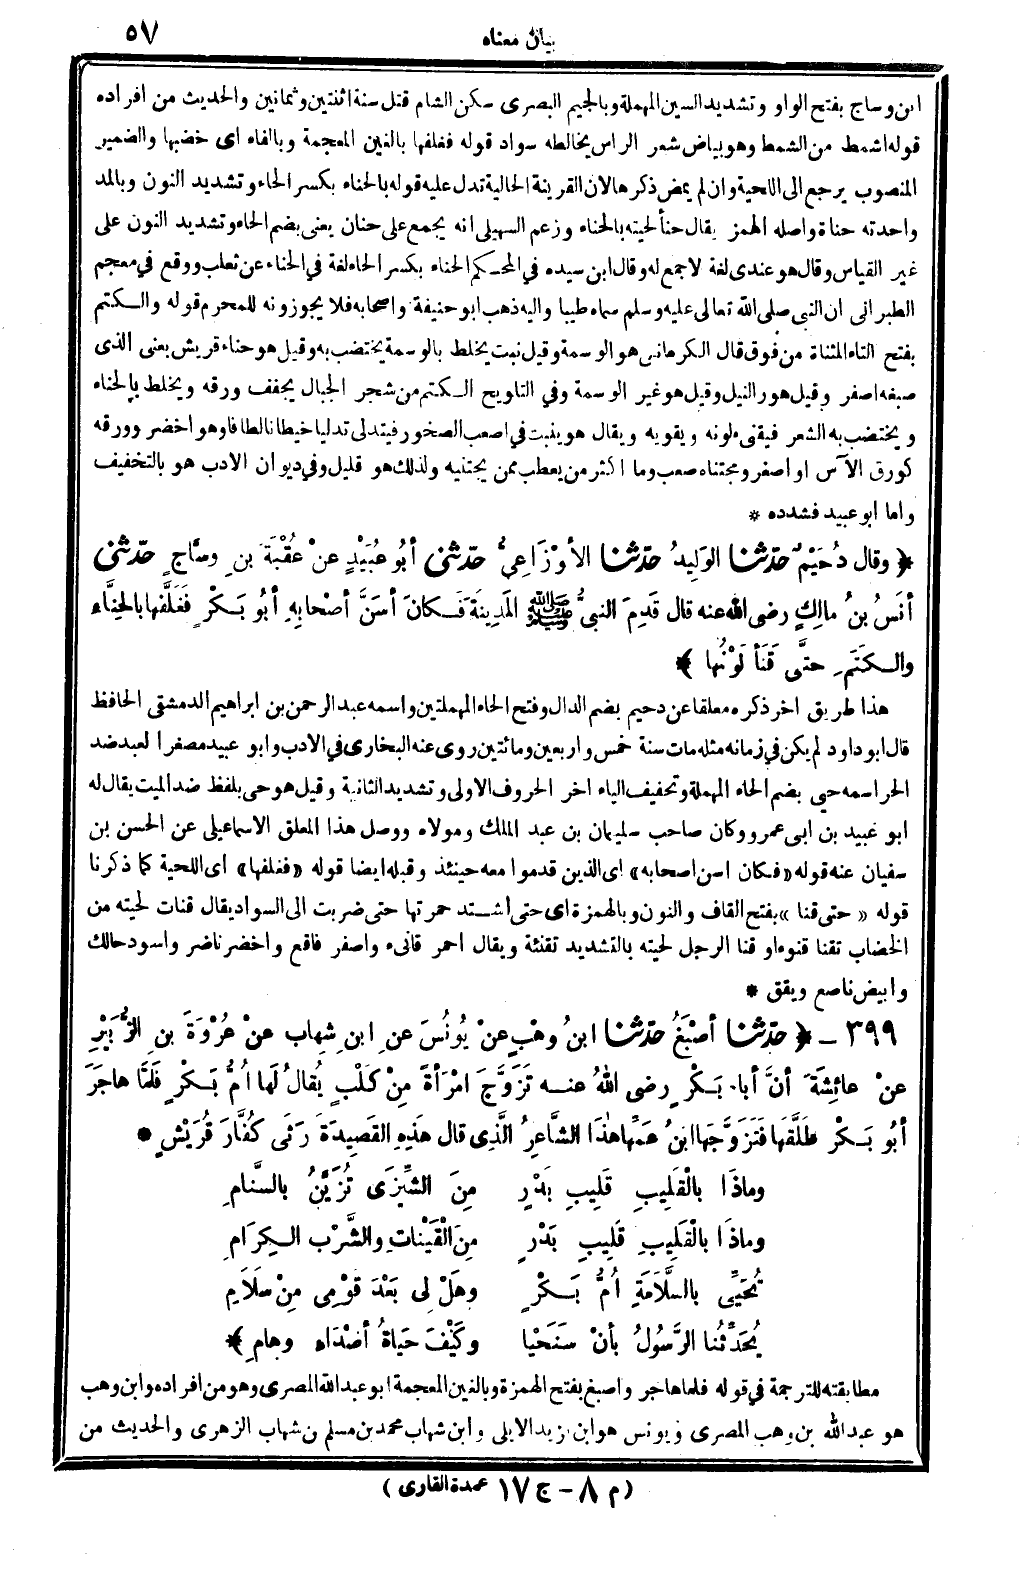 بيان معناه ٥٧
ابن وساج بفتح الواو وتشديد السين المهملة وبالجيم البصرى سكن الشام قتل سنة اثنتين وثمانين والحديث من افراده
قوله اشمط من الشمط وهو بياض شعر الراس يخالطه سواد قوله فغلفها بالغين المعجمة وبالفاء اى خضبها والضمير
المنصوب يرجع الى اللحية وان لم يمض ذكرها لان القرينة الحالية تدل عليه قوله بالحناء بكسر الحاء وتشديد النون وبالمد
واحدته حناة واصله الهمز يقال حنأ لحيته بالحناء وزعم السهيلى انه يجمع على حنان يعنى بضم الحاء وتشديد النون على
غير القياس وقال هو عندى لغة لا جمع له وقال ابن سيده في المحكم الحناء بكسر الحاء لغة في الحناء عن ثعلب ووقع في معجم
الطبرانى ان النبى صلى الله تعالى عليه وسلم سماه طيبا واليه ذهب ابو حنيفة واصحابه فلا يجوزونه للمحرم قوله والكتم
بفتح التاء المثناة من فوق قال الكرمانى هو الوسمة وقيل نبت يخلط بالوسمة يختضب به وقيل هو حناء قريش يعنى الذى
صبغه اصفر وقيل هو النيل وقيل هو غير الوسمة وفي التلويح الكتم من شجر الجبال يجفف ورقه ويخلط بالحناء
ويختضب به الشعر فيقنىء لونه ويقويه ويقال هو ينبت في اصعب الصخور فيتدلى تدليا خيطانا لطافا وهو اخضر وورقه
كورق الآس او اصفر ومجتناه صعب وما اكثر من يعطب ممن يجتنيه ولذلك هو قليل وفي ديوان الادب هو بالتخفيف
واما ابو عبيد فشدده *
﴿ وقال دُحَيْمٌ حدّثنا الوَلِيدُ حدّثنا الأوْزَاعِىُّ حدّثنى أبُو عُبَيْدٍ عنْ عُقْبَةَ بنِ وسَّاجٍ حدّثنى
أنَسُ بنُ مالِكٍ رضى الله عنه قال قَدِمَ النبىُّ ﷺ المَدِينَةَ فَكانَ أسَنَّ أصْحابِهِ أبُو بَكْرٍ فَغَلَّفَها بالحِنَّاءِ
والكَتَمِ حتَّى قَنَأ لَوْنُها ﴾
هذا طريق اخر ذكره معلقا عن دحيم بضم الدال وفتح الحاء المهملتين واسمه عبد الرحمن بن ابراهيم الدمشقى الحافظ
قال ابو داود لم يكن في زمانه مثله مات سنة خمس واربعين ومائتين روى عنه البخارى في الادب وابو عبيد مصغر العبد ضد
الحر اسمه حيى بضم الحاء المهملة وتخفيف الياء اخر الحروف الاولى وتشديد الثانية وقيل هو حى بلفظ ضد الميت يقال له
ابو عبيد بن ابى عمرو وكان صاحب سليمان بن عبد الملك ومولاه ووصل هذا المعلق الاسماعيلى عن الحسن بن
سفيان عنه قوله «فكان اسن اصحابه» اى الذين قدموا معه حينئذ وقبله ايضا قوله «فغلفها» اى اللحية كما ذكرنا
قوله « حتى قنا » بفتح القاف والنون وبالهمزة اى حتى اشتد حمرتها حتى ضربت الى السواد يقال قنات لحيته من
الخضاب تقنا قنوءا و قنا الرجل لحيته بالتشديد تقنئة ويقال احمر قانىء واصفر فاقع واخضر ناضر واسود حالك
وابيض ناصع ويقق *
٣٩٩ - ﴿ حدّثنا أصْبَغُ حدّثنا ابنُ وهْبٍ عنْ يُونُسَ عنِ ابنِ شِهابٍ عنْ عُرْوَةَ بنِ الزُّبَيْرِ
عنْ عائِشَةَ أنَّ أبا بَكْرٍ رضى اللهُ عنه تَزَوَّجَ امْرَأةً مِنْ كَلْبٍ يُقالُ لَها أُمُّ بَكْرٍ فَلَمَّا هاجَرَ
أبُو بَكْرٍ طَلَّقَها فَتَزَوَّجَها ابنُ عَمِّها هَذا الشَّاعِرُ الَّذِى قال هَذِهِ القَصِيدَةَ رَثَى كُفَّارَ قُرَيْشٍ *
وماذَا بالْقَلِيبِ قَلِيبِ بَدْرٍ مِنَ الشِّيزَى تُزَيَّنُ بالسَّنامِ
وماذَا بالْقَلِيبِ قَلِيبِ بَدْرٍ مِنَ الْقَيْناتِ والشَّرْبِ الكِرَامِ
تُحَيِّى بالسَّلَامَةِ أُمُّ بَكْرٍ وهَلْ لِى بَعْدَ قَوْمِى مِنْ سَلَامِ
يُحَدِّثُنا الرَّسُولُ بأنْ سَنَحْيا وكَيْفَ حَياةُ أصْدَاءٍ وهامِ ﴾
مطابقته للترجمة في قوله فلما هاجر واصبغ بفتح الهمزة وبالغين المعجمة ابو عبدالله المصرى وهو من افراده وابن وهب
هو عبدالله بن وهب المصرى ويونس هو ابن زيد الايلى وابن شهاب محمد بن مسلم بن شهاب الزهرى والحديث من
(م ٨ - ج ١٧ عمدة القارى)